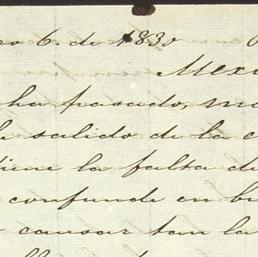 ro 6. de 1830
Mexi
ha pasado, m
salido de la c
iene la falta d
confunde en b
causar tan la